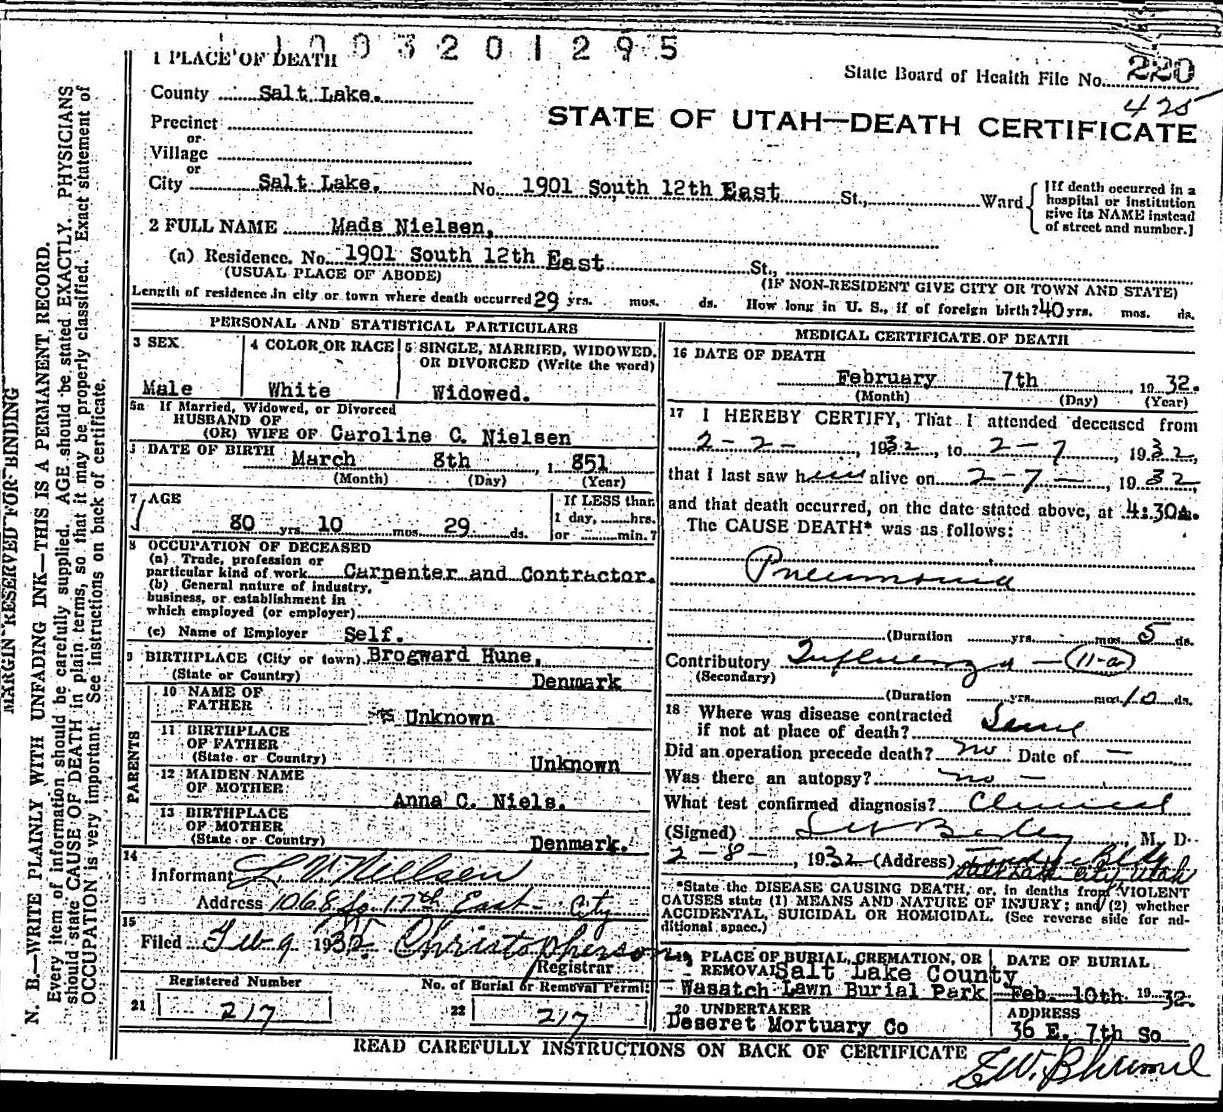 1003201295
1 PLACE OF DEATH
State Board of Health File No. 220
425
County Salt Lake.
STATE OF UTAH—DEATH CERTIFICATE
Precinct
or
Village
or
City Salt Lake. No. 1901 South 12th East St., Ward
[If death occurred in a hospital or institution give its NAME instead of street and number.]
2 FULL NAME Mads Nielsen,
(a) Residence. No. 1901 South 12th East St.,
(USUAL PLACE OF ABODE) (IF NON-RESIDENT GIVE CITY OR TOWN AND STATE)
Length of residence in city or town where death occurred 29 yrs. mos. ds. How long in U. S., if of foreign birth? 40 yrs. mos. ds.
PERSONAL AND STATISTICAL PARTICULARS
3 SEX
Male
4 COLOR OR RACE
White
5 SINGLE, MARRIED, WIDOWED, OR DIVORCED (Write the word)
Widowed.
5a If Married, Widowed, or Divorced
HUSBAND OF
(OR) WIFE OF Caroline C. Nielsen
DATE OF BIRTH March 8th, 1851
(Month) (Day) (Year)
7 AGE
80 yrs. 10 mos. 29 ds.
If LESS than
1 day, hrs.
or min.?
8 OCCUPATION OF DECEASED
(a) Trade, profession or
particular kind of work Carpenter and Contractor.
(b) General nature of industry,
business, or establishment in
which employed (or employer)
(c) Name of Employer Self.
9 BIRTHPLACE (City or town) Brogward Hune,
(State or Country) Denmark
PARENTS
10 NAME OF
FATHER Unknown
11 BIRTHPLACE
OF FATHER
(State or Country) Unknown
12 MAIDEN NAME
OF MOTHER Anna C. Niels.
13 BIRTHPLACE
OF MOTHER
(State or Country) Denmark.
14
Informant L. W. Nielsen
Address 1068 So. 17th East - City
15
Filed Feb 9 1932 Christopherson
Registrar
Registered Number
21 217
No. of Burial or Removal Permit
22 217
MEDICAL CERTIFICATE OF DEATH
16 DATE OF DEATH
February 7th 1932.
(Month) (Day) (Year)
17 I HEREBY CERTIFY, That I attended deceased from
2-2-, 1932, to 2-7, 1932,
that I last saw him alive on 2-7-, 1932,
and that death occurred, on the date stated above, at 4:30A.
The CAUSE DEATH* was as follows:
Pneumonia
(Duration yrs. mos. 5 ds.
Contributory Influenza - (11-a)
(Secondary)
(Duration yrs. mos. 10 ds.
18 Where was disease contracted
if not at place of death?
Did an operation precede death? no Date of —
Was there an autopsy? no —
What test confirmed diagnosis? Clinical
(Signed) M. D.
2-8-, 1932 (Address) Bldg
Salt Lake City, Utah
*State the DISEASE CAUSING DEATH, or, in deaths from VIOLENT
CAUSES state (1) MEANS AND NATURE OF INJURY; and (2) whether
ACCIDENTAL, SUICIDAL OR HOMICIDAL. (See reverse side for additional space.)
19 PLACE OF BURIAL, CREMATION, OR
REMOVAL Salt Lake County
Wasatch Lawn Burial Park
DATE OF BURIAL
Feb. 10th 1932.
20 UNDERTAKER
Deseret Mortuary Co
ADDRESS
36 E. 7th So
READ CAREFULLY INSTRUCTIONS ON BACK OF CERTIFICATE
MARGIN RESERVED FOR BINDING
N. B.—WRITE PLAINLY WITH UNFADING INK—THIS IS A PERMANENT RECORD.
Every item of information should be carefully supplied. AGE should be stated EXACTLY. PHYSICIANS
should state CAUSE OF DEATH in plain terms, so that it may be properly classified. Exact statement of
OCCUPATION is very important. See instructions on back of certificate.